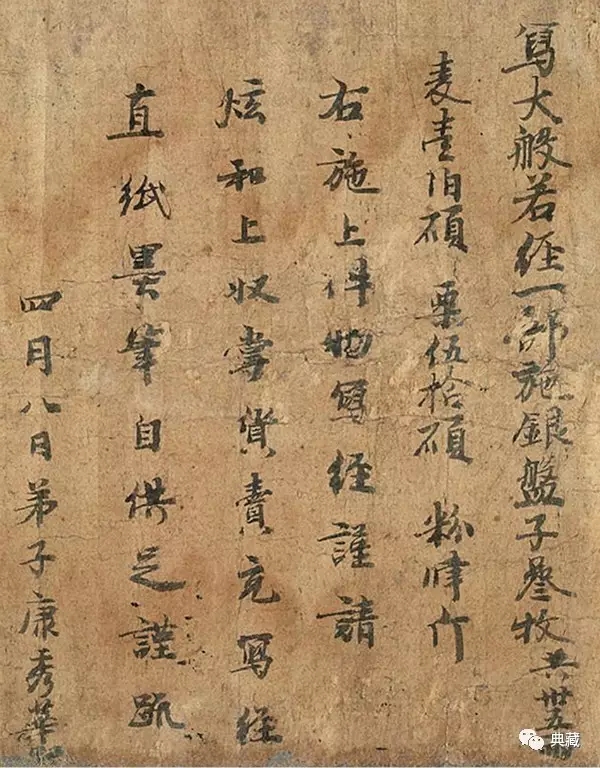 寫大般若經一部施銀盤子叁枚共卅五兩
麦壹伯碩 粟伍拾碩 粉肆斤
右施上件物寫經謹請
炫和上收掌貨賣充寫經
直紙墨筆自供足謹疏
四月八日弟子康秀華
典藏